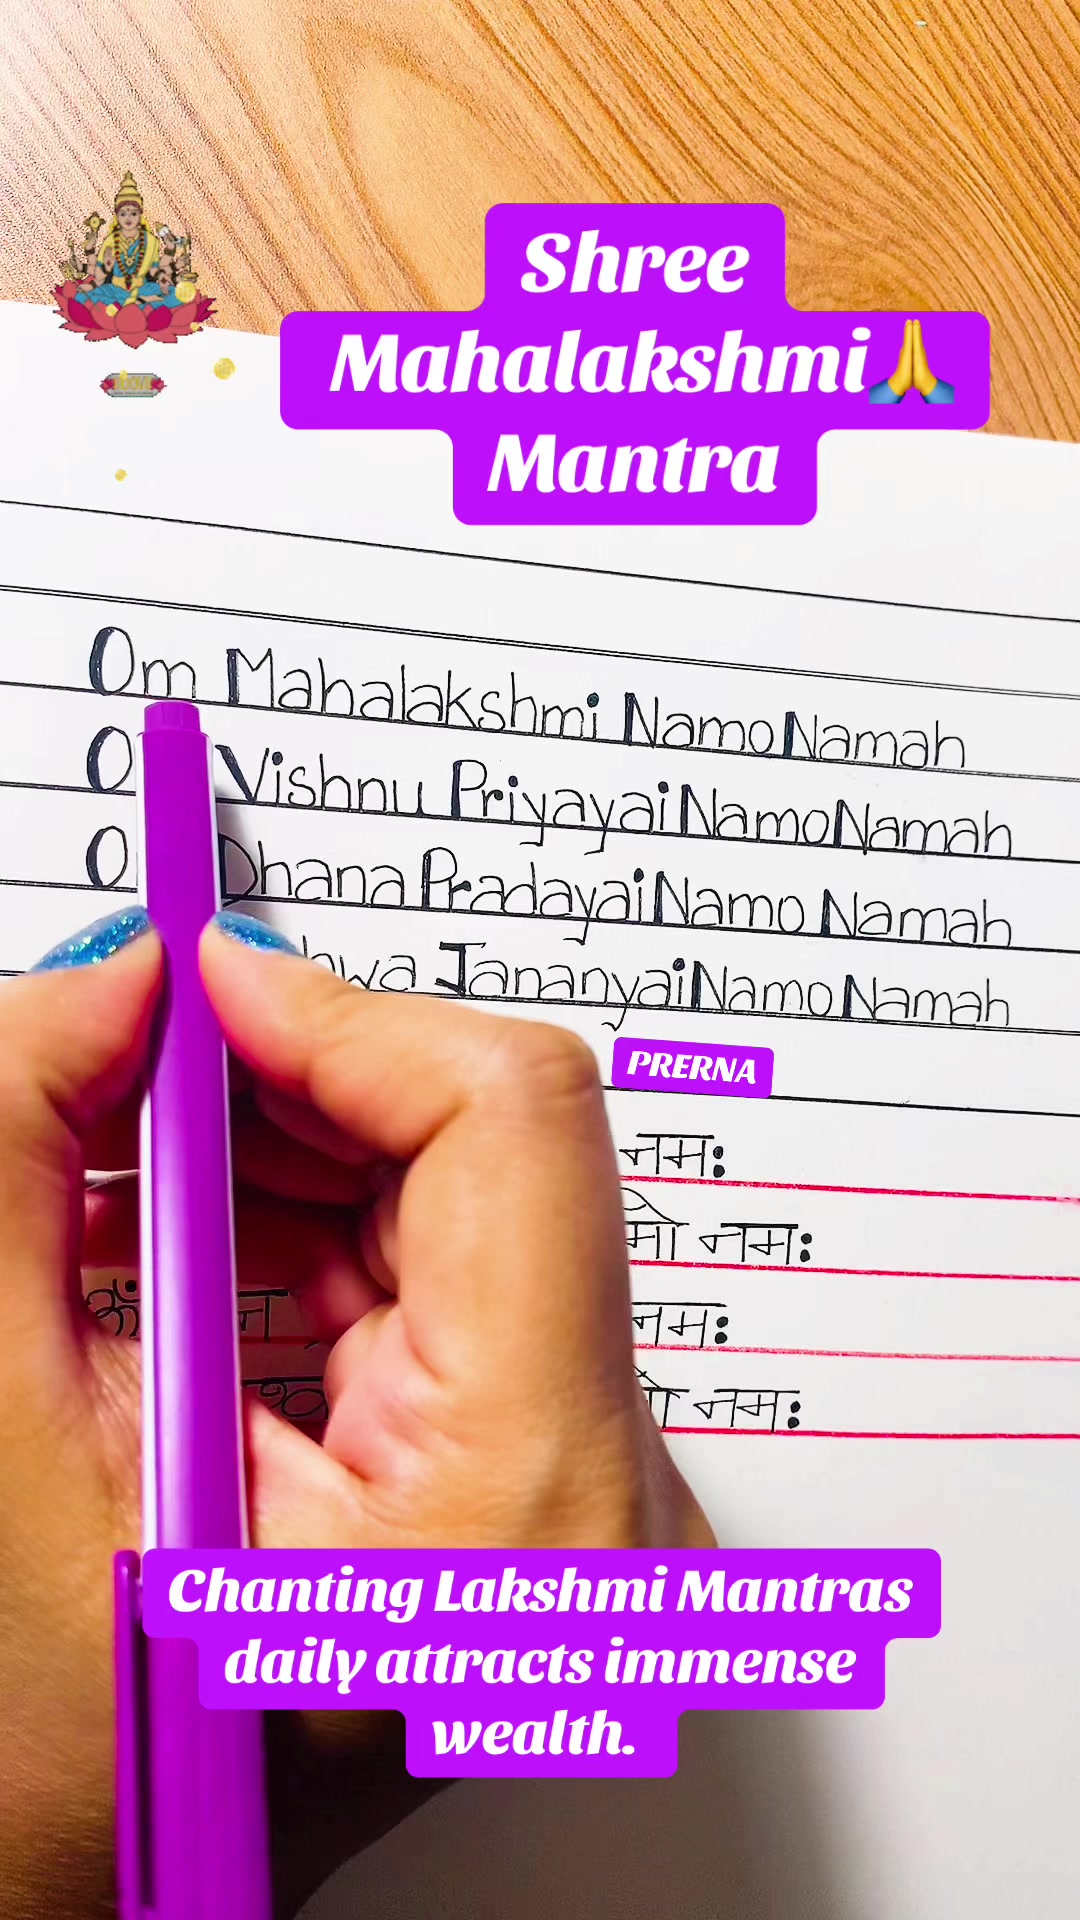 Shree
Mahalakshmi🙏
Mantra
Om Mahalakshmi Namo Namah
Vishnu Priyayai Namo Namah
Dhana Pradayai Namo Namah
Jananyai Namo Namah
PRERNA
नमः
नमः
नमः
नमः
Chanting Lakshmi Mantras
daily attracts immense
wealth.